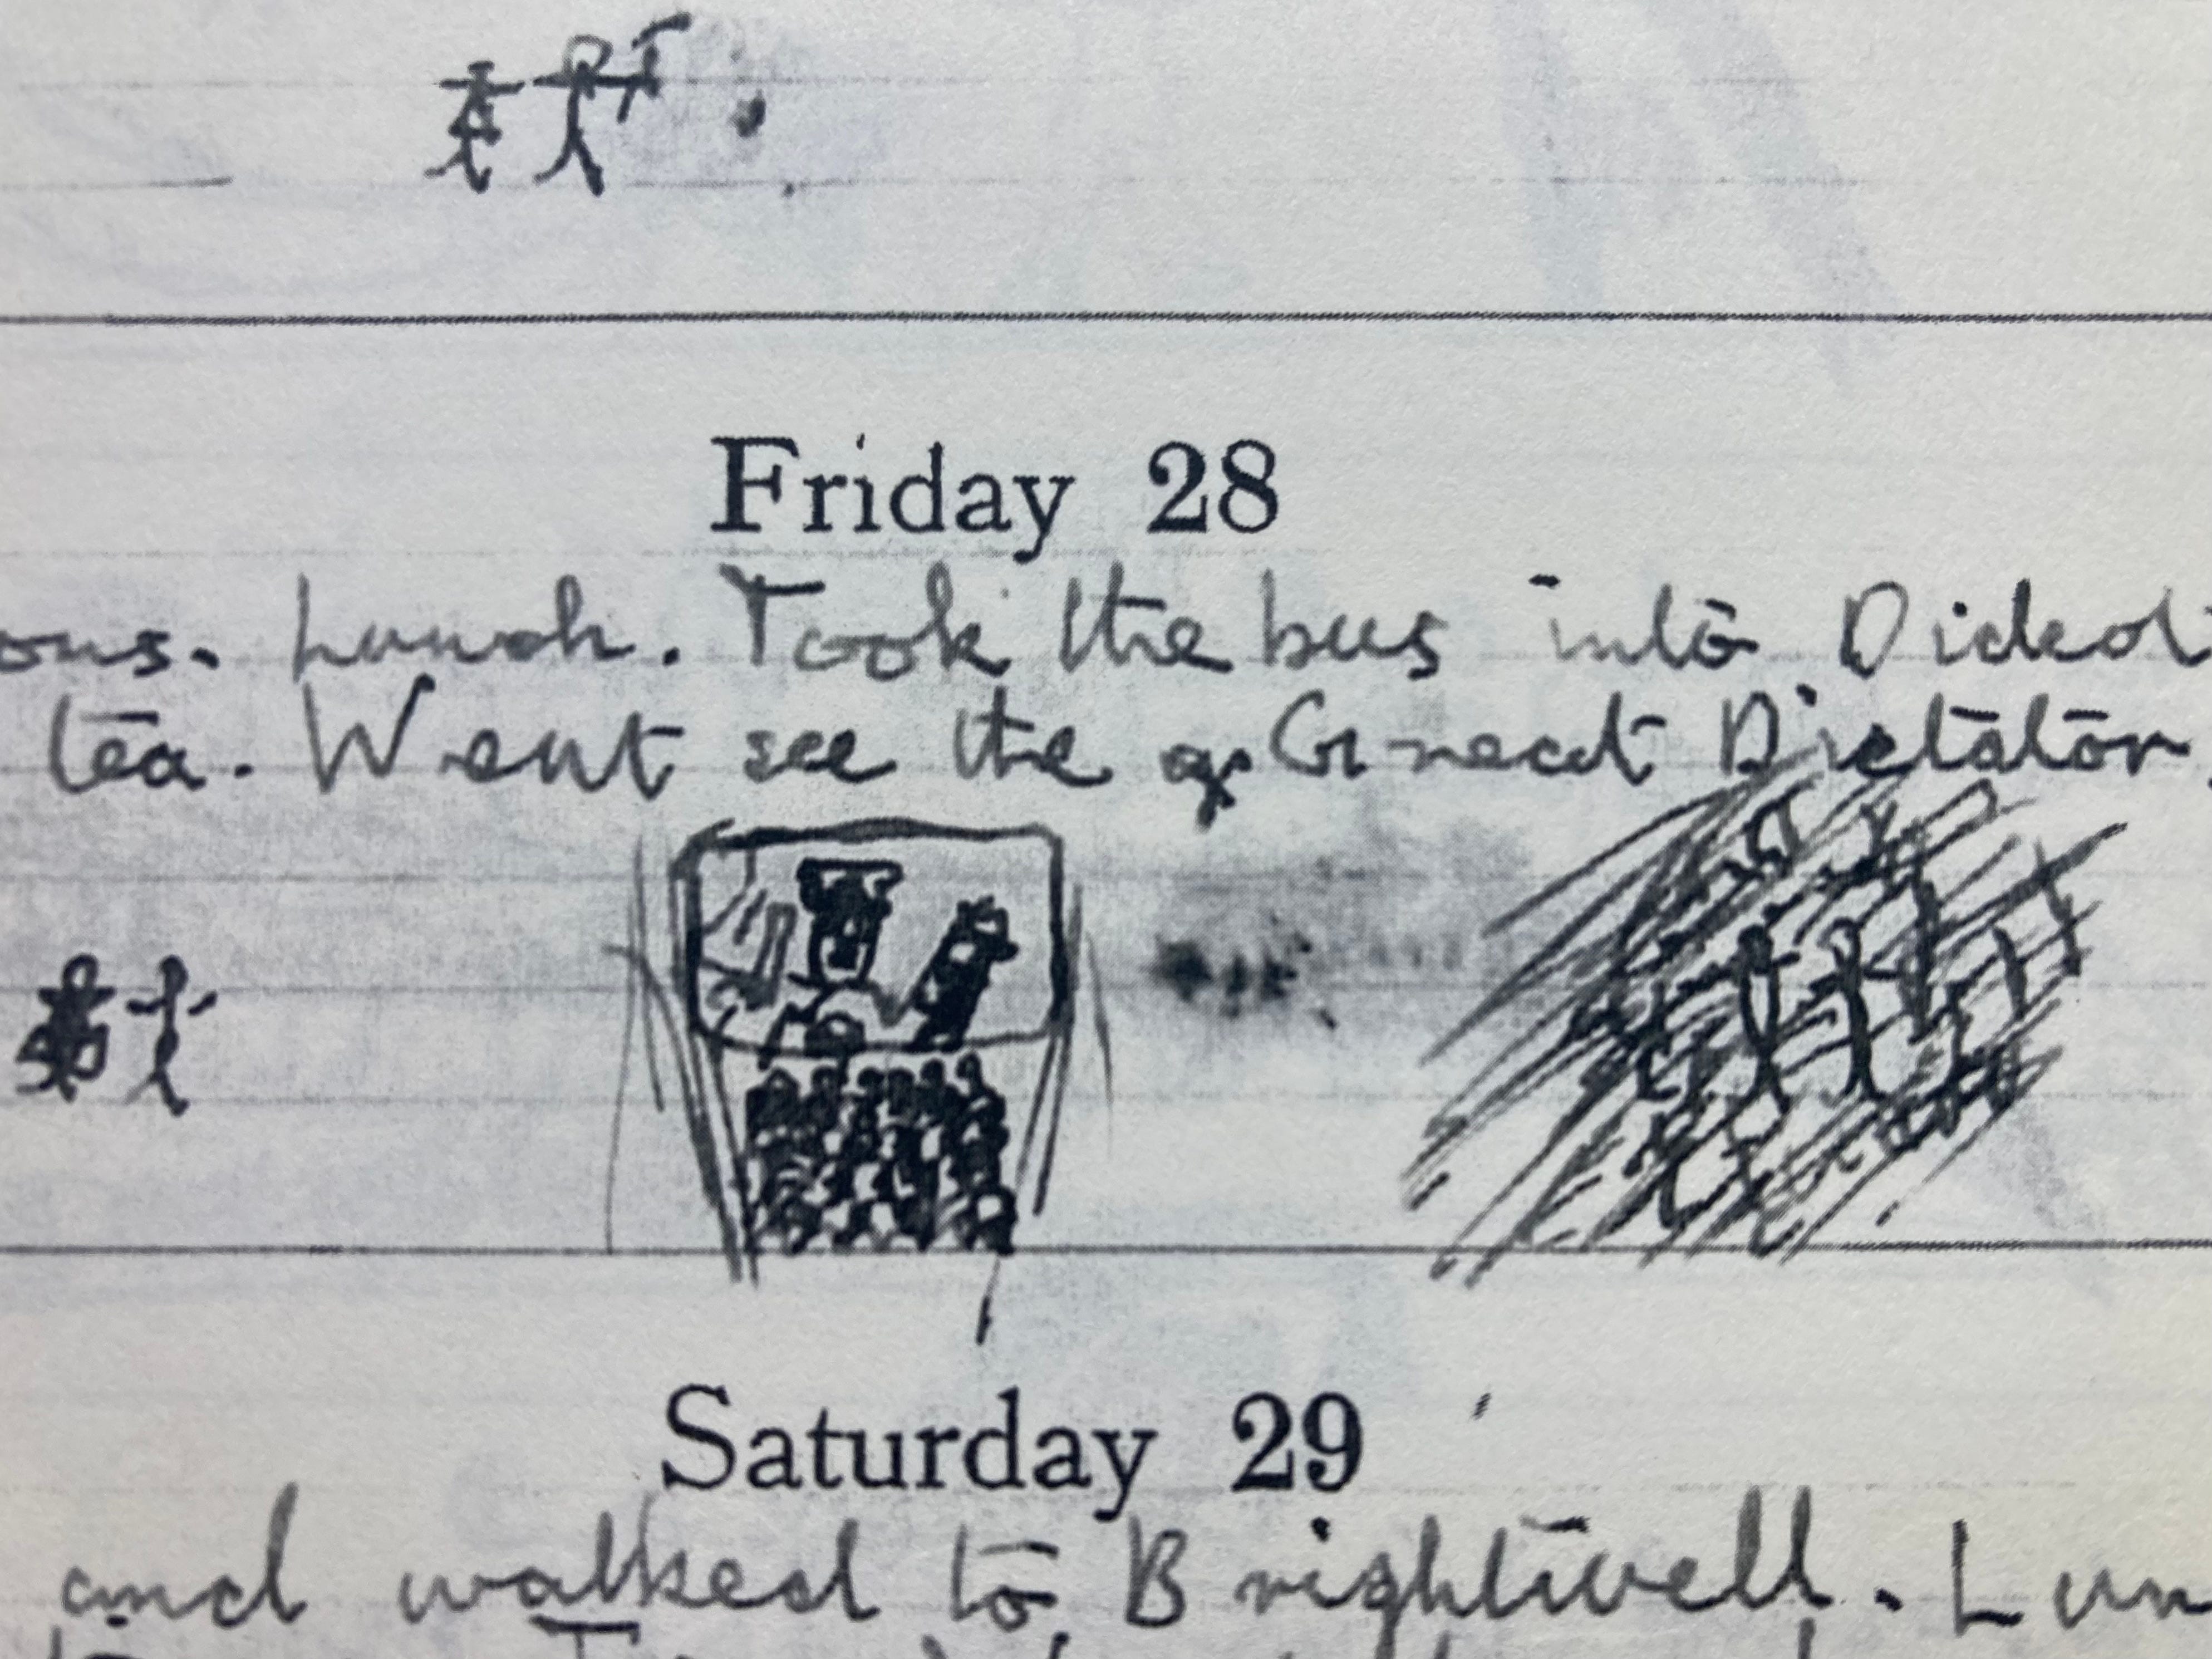 Friday 28
ous. Lunch. Took the bus into Didcot
tea. Went see the gr Great Dictator,
Saturday 29
and walked to Brightwell. Lun